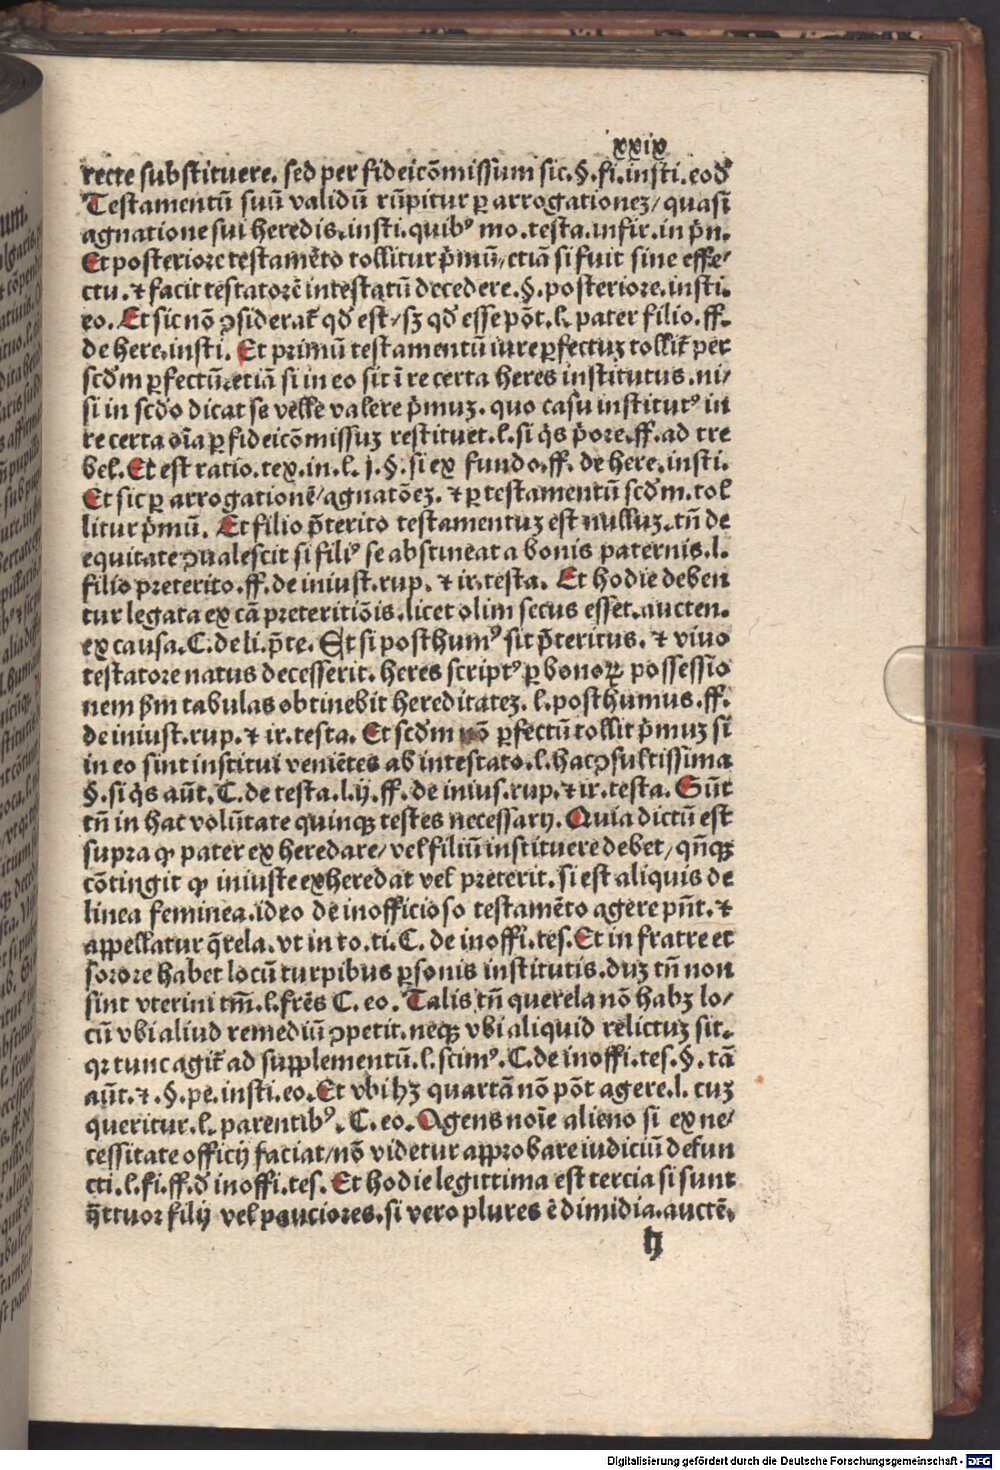 xxix
recte substituere. sed per fideicōmissum sic. §. fi. insti. eod̄
Testamentū suū validū rūpitur ꝑ arrogationeȝ/ quasi
agnatione sui heredis. insti. quibꝰ mo. testa. infir. in p̄n.
Et posteriore testamēto tollitur p̄mū/ etiā si fuit sine effe/
ctu. ⁊ facit testatorē intestatū decedere. §. posteriore. insti.
eo. Et sic nō ꝯsiderat̄ qd̄ est/ sȝ qd̄ esse pōt. l. pater filio. ff.
de here. insti. Et primū testamentū iure ꝑfectuȝ tollit̄ per
scd̄m ꝑfectū. etiā si in eo sit ī re certa heres institutus. ni/
si in scd̄o dicat se velle valere p̄muȝ. quo casu institutꝰ in
re certa oīa ꝑ fideicōmissuȝ restituet. l. si q̄s p̄ore. ff. ad tre
bel. Et est ratio. tex. in. l. j. §. si ex fundo. ff. de here. insti.
Et sic ꝑ arrogationē/ agnatōeȝ. ⁊ ꝑ testamentū scd̄m. tol
litur p̄mū. Et filio p̄terito testamentuȝ est nulluȝ. tn̄ de
equitate ꝯualescit si filiꝰ se abstineat a bonis paternis. l.
filio preterito. ff. de iniust. rup. ⁊ ir. testa. Et hodie deben
tur legata ex cā preteritiōis. licet olim secus esset. aucten.
ex causa. C. de li. p̄te. Et si posthumꝰ sit p̄teritus. ⁊ viuo
testatore natus decesserit. heres scriptꝰ ꝑ bonoꝝ possessio
nem ẜm tabulas obtinebit hereditateȝ. l. posthumus. ff.
de iniust. rup. ⁊ ir. testa. Et scd̄m nō ꝑfectū tollit p̄muȝ si
in eo sint institui veniētes ab intestato. l. hac ꝯsultissima
§. si q̄s aūt. C. de testa. l. ij. ff. de inius. rup. ⁊ ir. testa. Sūt
tn̄ in hac volūtate quinqȝ testes necessarij. Quia dictū est
supra ꝙ pater exheredare/ vel filiū instituere debet/ qn̄qȝ
cōtingit ꝙ iniuste exheredat vel preterit. si est aliquis de
linea feminea. ideo de inofficioso testamēto agere pn̄t. ⁊
appellatur q̄rela. vt in to. ti. C. de inoffi. tes. Et in fratre et
sorore habet locū turpibus ꝑsonis institutis. duȝ tn̄ non
sint vterini tm̄. l. fr̄es C. eo. Talis tn̄ querela nō habȝ lo/
cū vbi aliud remediū ꝯpetit. neqȝ vbi aliquid relictuȝ sit.
qꝛ tunc agit̄ ad supplementū. l. scimꝰ. C. de inoffi. tes. §. tā
aūt. ⁊. §. pe. insti. eo. Et vbi hȝ quartā nō pōt agere. l. cuȝ
queritur. l. parentibꝰ. C. eo. Agens noīe alieno si ex ne/
cessitate officij faciat/ nō videtur approbare iudiciū defun
cti. l. fi. ff. d̄ inoffi. tes. Et hodie legittima est tercia si sunt
q̄ttuor filij vel pauciores. si vero plures ē dimidia. auctē.
h
Digitalisierung gefördert durch die Deutsche Forschungsgemeinschaft - DFG